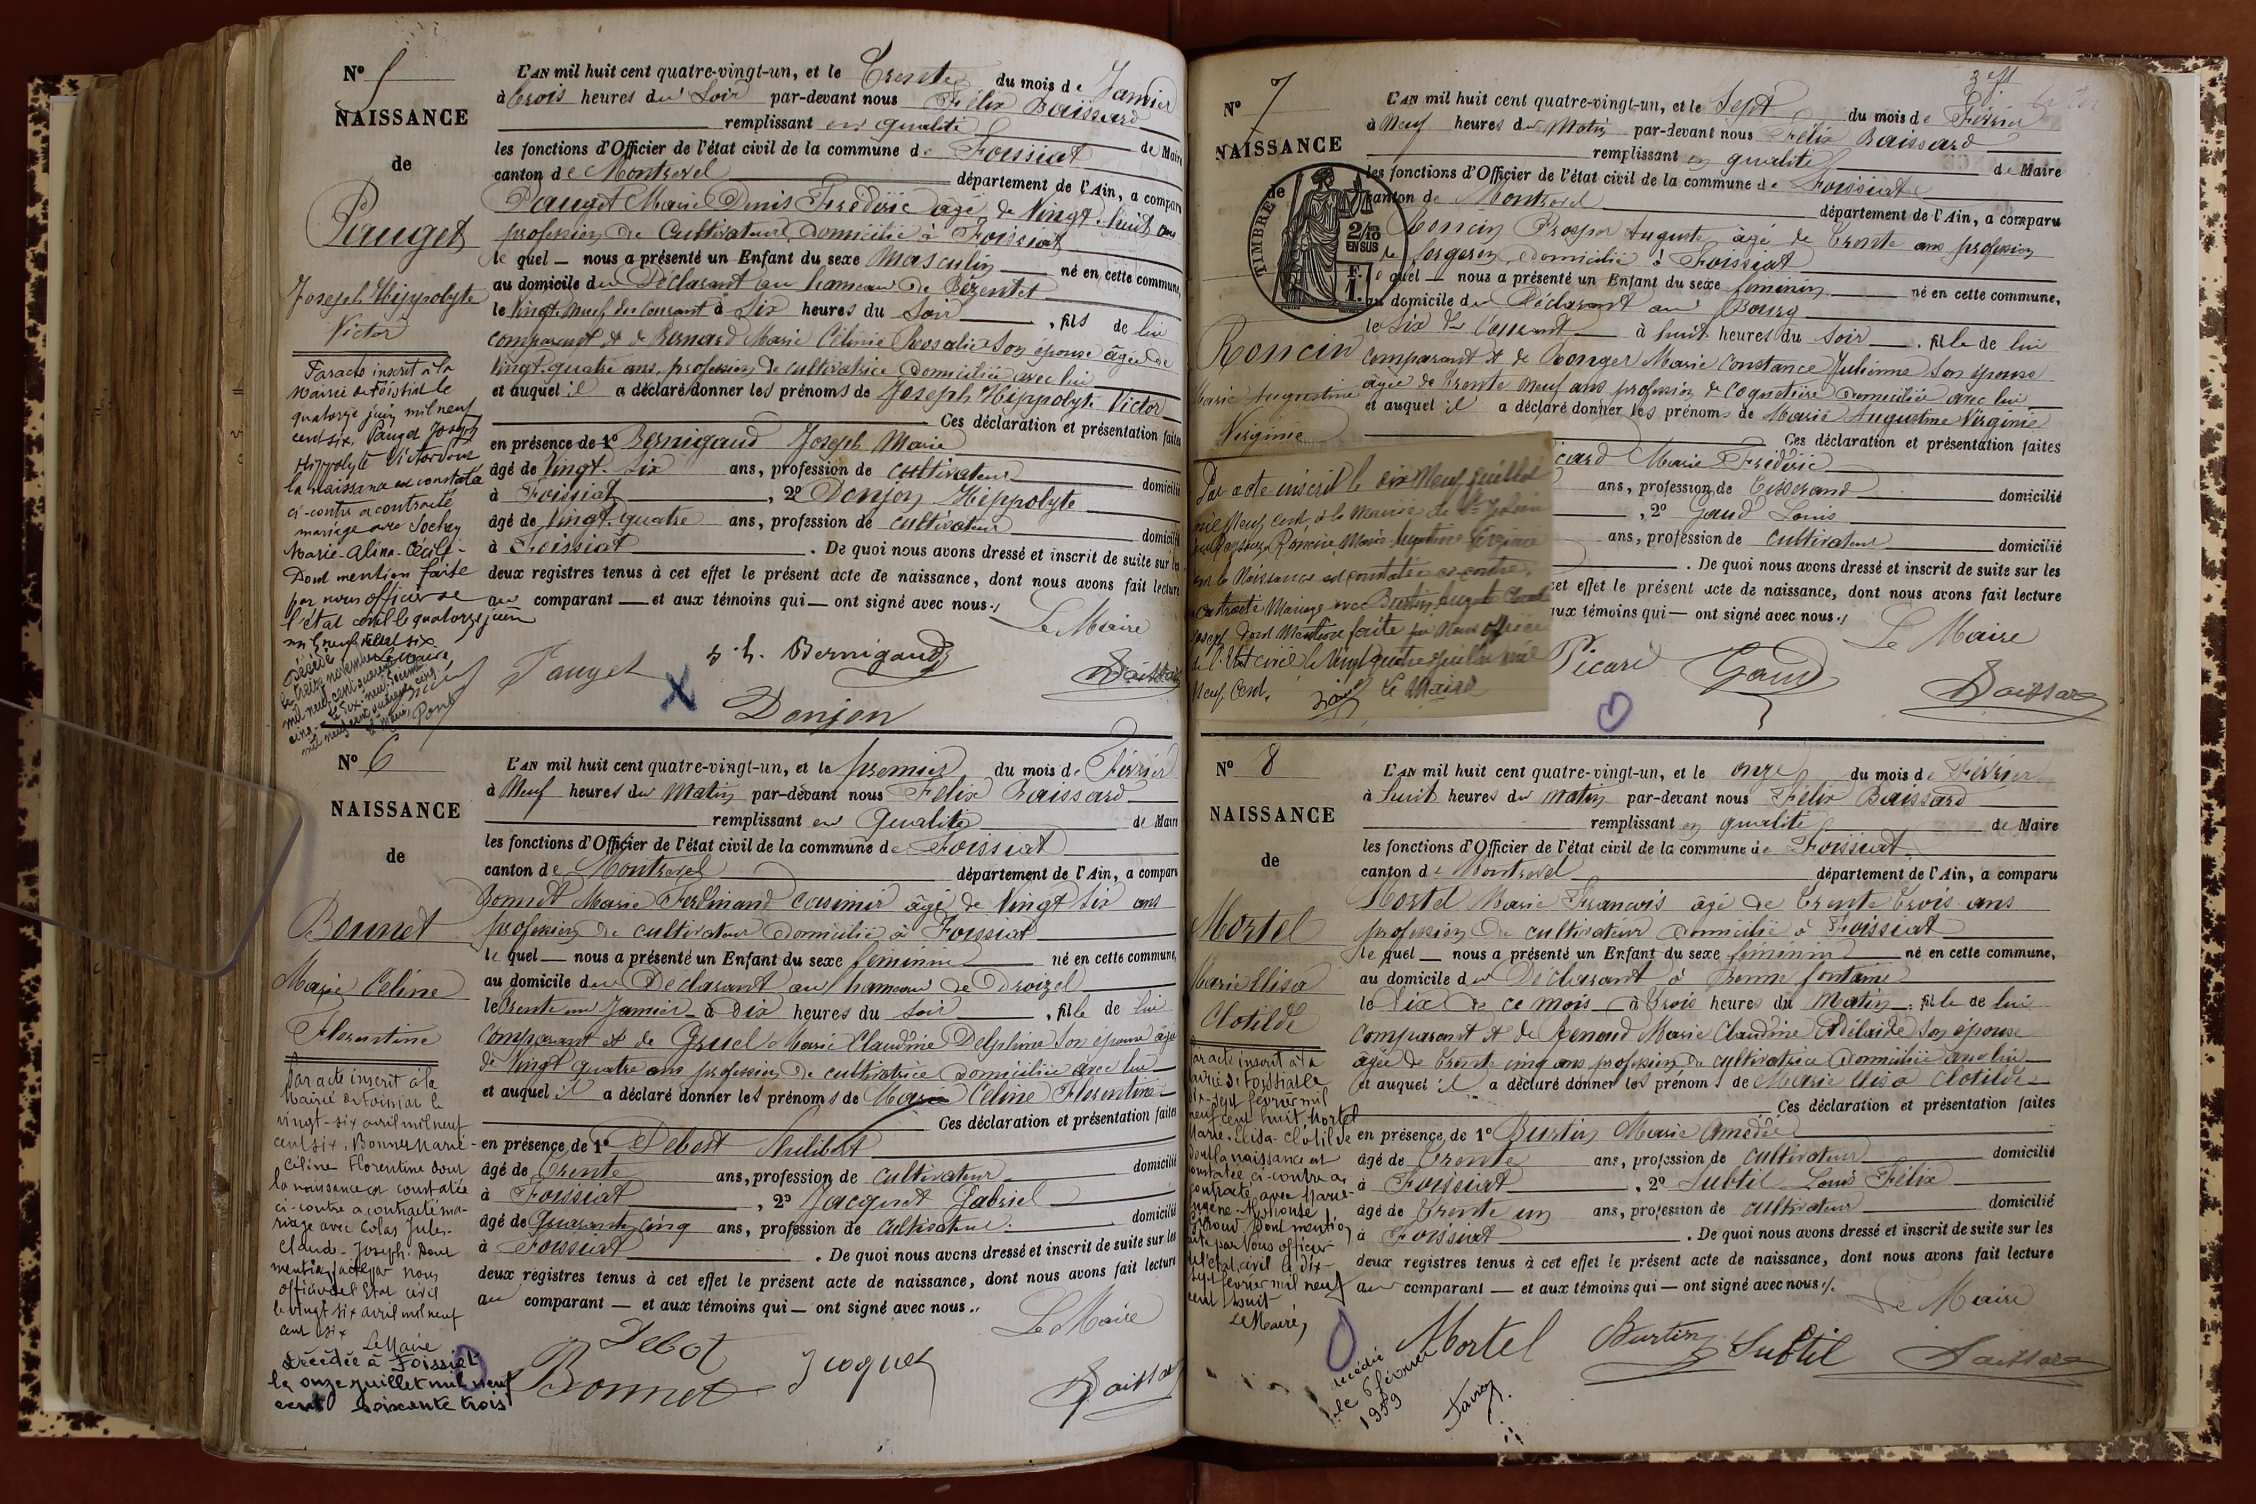 N° 5
NAISSANCE
de
Pauget
Joseph Hippolyte
Victor
Par acte inscrit à la
Mairie de Foissiat le
quatorze juin mil neuf
cent six, Pauget Joseph
Hippolyte Victor dont
la naissance est constatée
ci-contre a contracté
mariage avec Sochay
Marie-Alina-Cécile-
Dont mention faite
par nous officier de
l'état civil le quatorze juin
mil neuf cent six
Le Maire
Décédé
le treize novembre
mil neuf cent soixante
cinq
L'AN mil huit cent quatre-vingt-un, et le Trente du mois de Janvier
à trois heures du Soir par-devant nous Félix Baissard
remplissant en qualité de Maire
les fonctions d'Officier de l'état civil de la commune de Foissiat
canton de Montrevel département de l'Ain, a comparu
Pauget Marie Denis Frédéric âgé de Vingt huit ans
profession de Cultivateur domicilié à Foissiat
le quel — nous a présenté un Enfant du sexe Masculin né en cette commune,
au domicile du Déclarant au hameau de Bézentet
le Vingt-neuf du Courant à Six heures du Soir , fils de lui
comparant et de Renard Marie Céline Rosalie son épouse âgée de
vingt-quatre ans, profession de cultivatrice domiciliée avec lui
et auquel il a déclaré donner les prénoms de Joseph Hippolyte Victor
Ces déclaration et présentation faites
en présence de 1° Bernigaud Joseph Marie
âgé de Vingt-six ans, profession de cultivateur domicilié
à Foissiat , 2° Donjon Hippolyte
âgé de Vingt-quatre ans, profession de cultivateur domicilié
à Foissiat . De quoi nous avons dressé et inscrit de suite sur les
deux registres tenus à cet effet le présent acte de naissance, dont nous avons fait lecture
au comparant — et aux témoins qui — ont signé avec nous./
Le Maire
Pauget Bernigaud Baissard
Donjon
N° 6
NAISSANCE
de
Bonnet
Marie Céline
Florentine
Par acte inscrit à la
Mairie de Foissiat le
vingt-six avril mil neuf
cent six, Bonnet Marie-
Céline Florentine dont
la naissance est constatée
ci-contre a contracté ma-
riage avec Colas Jules-
Claude-Joseph. Dont
mention faite par nous
officier de l'Etat civil
le vingt six avril mil neuf
cent six
Le Maire
Décédée à Foissiat
le onze juillet mil neuf
cent soixante trois
L'AN mil huit cent quatre-vingt-un, et le premier du mois de Février
à Neuf heures du Matin par-devant nous Félix Baissard
remplissant en Qualité de Maire
les fonctions d'Officier de l'état civil de la commune de Foissiat
canton de Montrevel département de l'Ain, a comparu
Bonnet Marie Ferdinand Casimir âgé de Vingt six ans
profession de cultivateur domicilié à Foissiat
le quel — nous a présenté un Enfant du sexe féminin né en cette commune,
au domicile du Déclarant au hameau de Droizel
le Trente un Janvier à Dix heures du Soir , fille de lui
comparant et de Gruel Marie Claudine Delphine son épouse âgée
de Vingt quatre ans profession de cultivatrice domiciliée avec lui
et auquel il a déclaré donner les prénoms de Marie Céline Florentine
Ces déclaration et présentation faites
en présence de 1° Debost Philibert
âgé de Trente ans, profession de cultivateur domicilié
à Foissiat , 2° Jacquet Gabriel
âgé de Quarante cinq ans, profession de cultivateur. domicilié
à Foissiat . De quoi nous avons dressé et inscrit de suite sur les
deux registres tenus à cet effet le présent acte de naissance, dont nous avons fait lecture
au comparant — et aux témoins qui — ont signé avec nous./
Le Maire
Debot
Bonnet Jacquet Baissard
N° 7
NAISSANCE
de
TIMBRE
2/10
EN SUS
Roncin
Marie Augustine
Virginie
Par acte inscrit le dix Neuf Juillet
mil Neuf Cent, à la Mairie de St Julien
sur Reyssouze Roncin Marie Augustine Virginie
dont la Naissance est constatée ci-contre,
a contracté Mariage avec Burtin August Claude
Joseph dont Mention faite par Nous officier
de l'Etat civil le Vingt Quatre Juillet mil
Neuf Cent. Le Maire
L'AN mil huit cent quatre-vingt-un, et le Sept du mois de Février
à Neuf heures du Matin par-devant nous Félix Baissard
remplissant en qualité de Maire
les fonctions d'Officier de l'état civil de la commune de Foissiat
canton de Montrevel département de l'Ain, a comparu
Roncin Prosper Auguste âgé de Trente ans profession
de forgeron domicilié à Foissiat
le quel — nous a présenté un Enfant du sexe féminin né en cette commune,
au domicile du Déclarant au Bourg
le Six du Courant à huit heures du Soir , fille de lui
comparant et de Ronger Marie Constance Julienne son épouse
âgée de Trente neuf ans profession de Coquetière domiciliée avec lui
et auquel il a déclaré donner les prénoms de Marie Augustine Virginie
Ces déclaration et présentation faites
card Marie Frédéric
ans, profession de Tisserand domicilié
, 2° Gaud Louis
ans, profession de cultivateur domicilié
. De quoi nous avons dressé et inscrit de suite sur les
cet effet le présent acte de naissance, dont nous avons fait lecture
aux témoins qui — ont signé avec nous./
Le Maire
Picard Gaud Baissard
N° 8
NAISSANCE
de
Mortel
Marie Elisa
Clotilde
Par acte inscrit à la
Mairie de Foissiat le
dix-sept février mil
neuf cent huit, Mortel
Marie-Elisa-Clotilde
dont la naissance est
constatée ci-contre a
contracté avec Marie-
Eugène-Alphonse
Dont mention
faite par Nous officier
de l'état civil le dix-
sept février mil neuf
cent huit
Le Maire,
décédée
le 6 février
1959
L'AN mil huit cent quatre-vingt-un, et le onze du mois de Février
à huit heures du matin par-devant nous Félix Baissard
remplissant en qualité de Maire
les fonctions d'Officier de l'état civil de la commune de Foissiat.
canton de Montrevel département de l'Ain, a comparu
Mortel Marie François âgé de Trente trois ans
profession de cultivateur domicilié à Foissiat
le quel — nous a présenté un Enfant du sexe féminin né en cette commune,
au domicile du Déclarant à Bonne fontaine
le Dix de ce mois à trois heures du Matin , fille de lui
comparant et de Renoud Marie Claudine Adélaïde son épouse
âgée de trente cinq ans profession de cultivatrice domiciliée avec lui
et auquel il a déclaré donner les prénoms de Marie Elisa Clotilde
Ces déclaration et présentation faites
en présence de 1° Burtin Marie Amédée
âgé de Trente ans, profession de cultivateur domicilié
à Foissiat , 2° Subtil Louis Félix
âgé de Trente un ans, profession de cultivateur domicilié
à Foissiat . De quoi nous avons dressé et inscrit de suite sur les
deux registres tenus à cet effet le présent acte de naissance, dont nous avons fait lecture
au comparant — et aux témoins qui — ont signé avec nous./.
Le Maire
Mortel Burtin Subtil Baissard